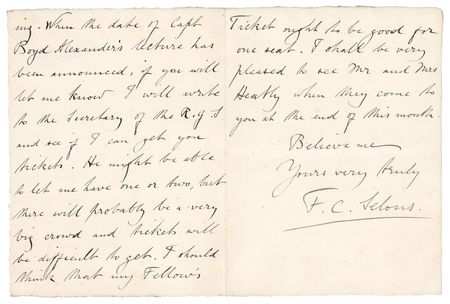 ing. When the date of Capt
Boyd Alexander's lecture has
been announced, if you will
let me know I will write
to the Secretary of the R.G.S
and see if I can get you
tickets. He might be able
to let me have one or two, but
there will probably be a very
big crowd and tickets will
be difficult to get. I should
think that my Fellow's
Ticket ought to be good for
one seat. I shall be very
pleased to see Mr and Mrs
Heatley when they come to
you at the end of this month.
Believe me
Yours very truly
F. C. Selous.